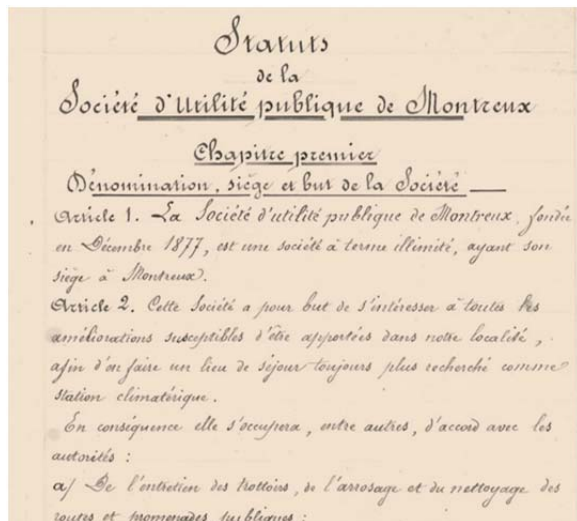 Statuts
de la
Société d'Utilité publique de Montreux
Chapitre premier
Dénomination, siège et but de la Société
Article 1. La Société d'utilité publique de Montreux, fondée
en Décembre 1877, est une société à terme illimité, ayant son
siège à Montreux.
Article 2. Cette Société a pour but de s'intéresser à toutes les
améliorations susceptibles d'être apportées dans notre localité,
afin d'en faire un lieu de séjour toujours plus recherché comme
station climatérique.
En conséquence elle s'occupera, entre autres, d'accord avec les
autorités :
a/ De l'entretien des trottoirs, de l'arrosage et du nettoyage des
routes et promenades publiques ;